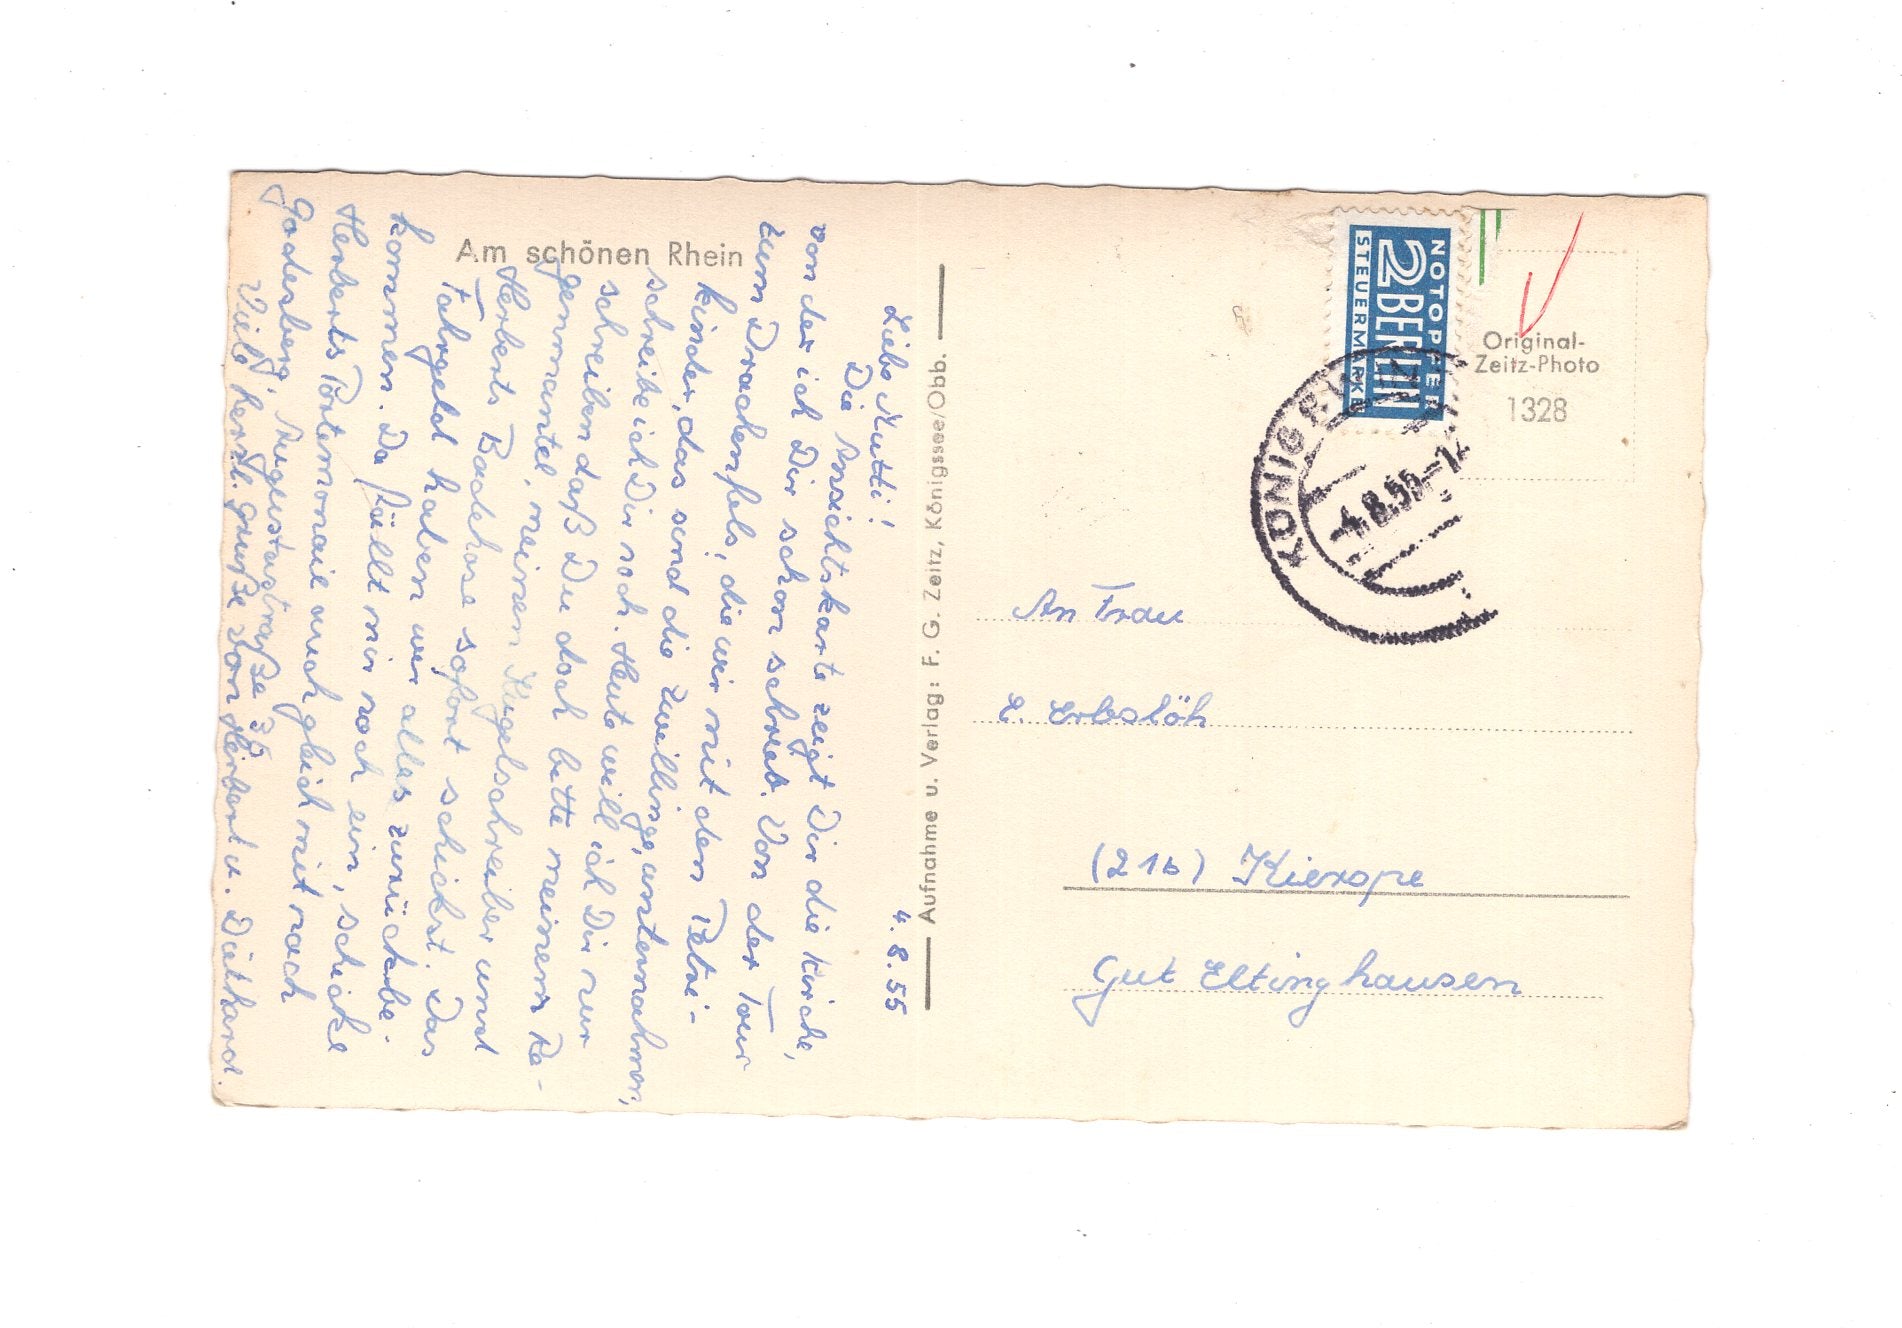 4.8.55
Liebe Mutti!
Die Ansichtskarte zeigt Dir die Kirche,
von der ich Dir schon schrieb. Von der Tour
zum Drachenfels, die wir mit den Petri-
kinder, das sind die Zwillinge, unternahmen,
schreibe ich Dir noch. Heute will ich Dir nur
schreiben daß Du doch bitte meinen Re-
genmantel, meinen Kugelschreiber und
Herberts Badehose sofort schickst. Das
Fahrgeld haben wir alles zurückbe-
kommen. Da fällt mir noch ein, schicke
Herberts Portemonaie auch gleich mit nach
Godesberg, Augustastraße 35
Viele herzl. Grüße von Herbert u. Diethard.
Am schönen Rhein
Aufnahme u. Verlag: F. G. Zeitz, Königssee/Obb.
NOTOPFER
2 BERLIN
STEUERMARKE
Original-
Zeitz-Photo
1328
KÖNIGSWIN
-4.8.55-12
An Frau
E. Erbslöh
(21b) Kierspe
Gut Eltinghausen